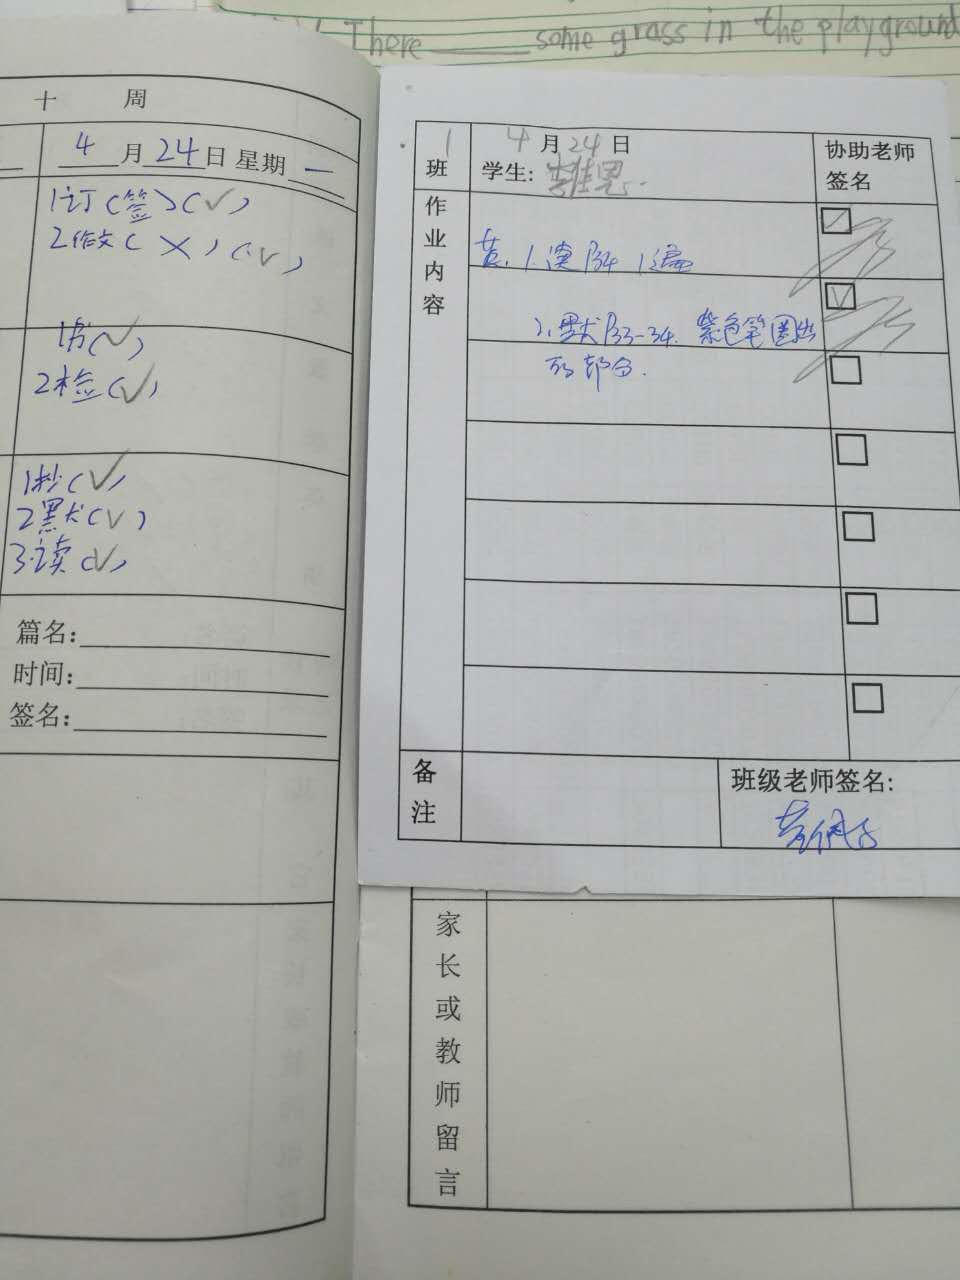 There ____ some grass in the playground
十 周
4 月 24 日 星期 一
1订(签)(✓)
2作文(×)(✓)
1书(✓)
2检(✓)
1抄(✓)
2默(✓)
3.读(✓)
篇名:
时间:
签名:
1
班
4 月 24 日
学生:
协助老师
签名
作业内容
英. 1.读P34 1遍
2.默P33-34. 紫色笔圈出
的部分.
备注
班级老师签名:
家长或教师留言